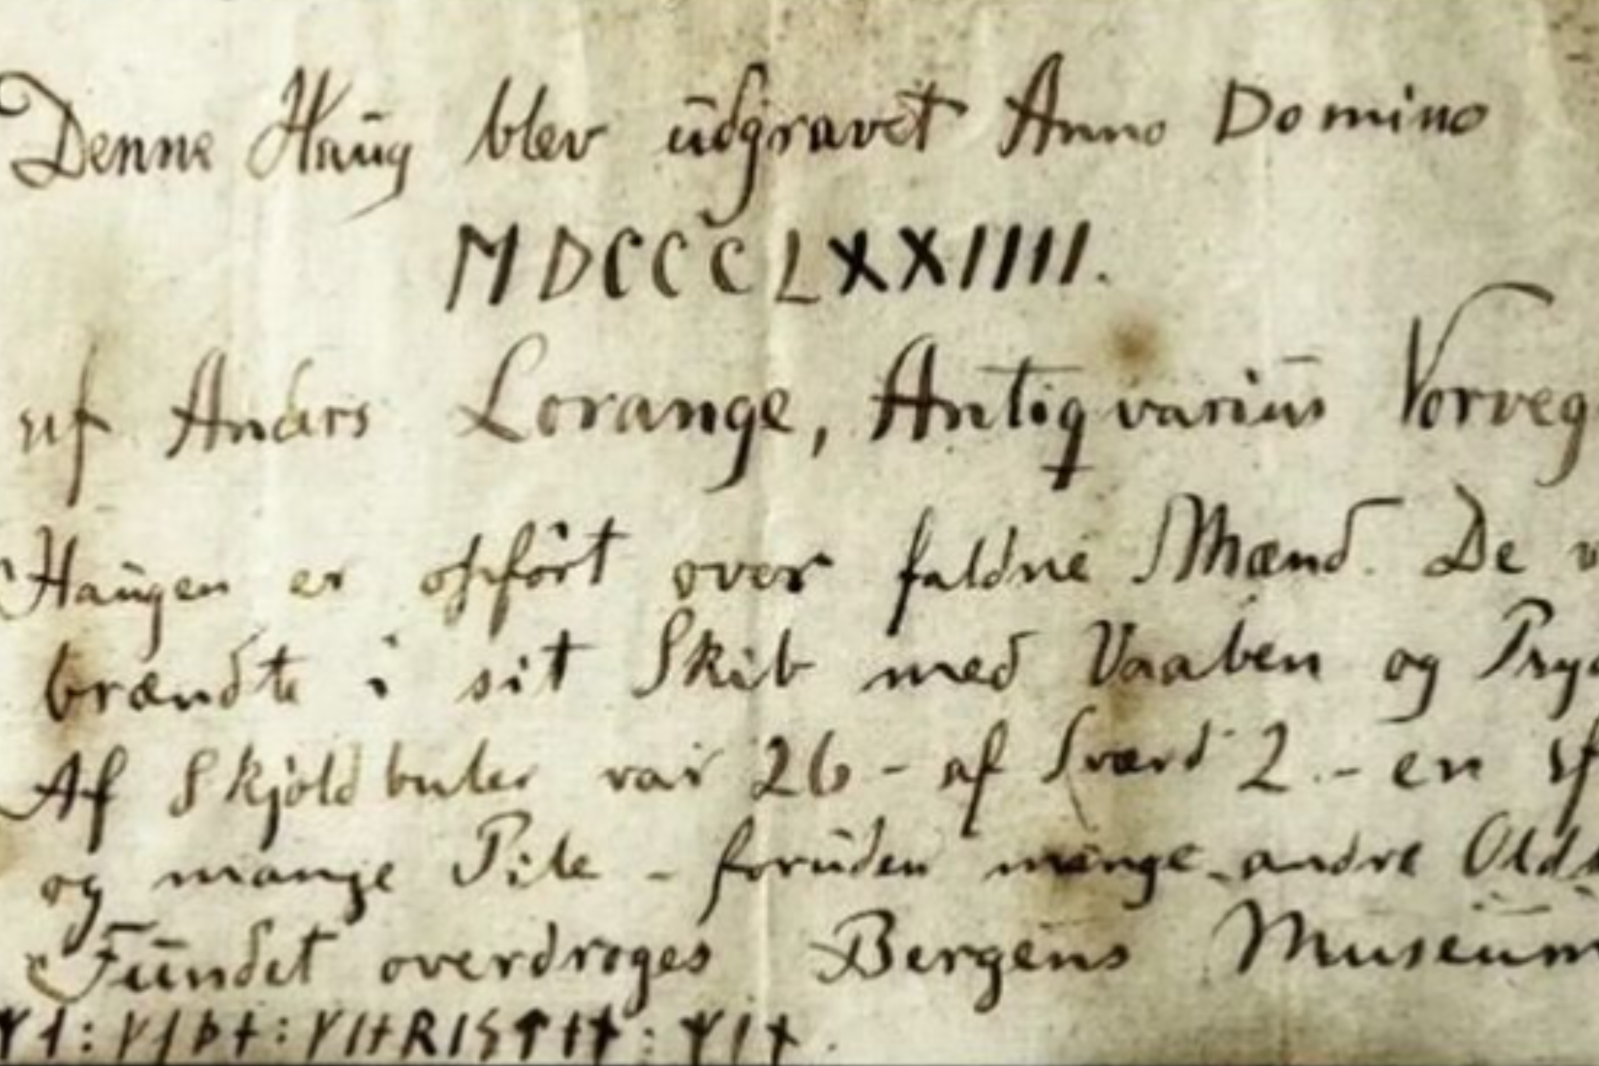 Denne Haug blev udgravet Anno Domino
MDCCCLXXIIII.
af Anders Lorange, Antiqvarius Norveg
Haugen er opført over faldne Mænd. De
brændte i sit Skib med Vaaben og
Af Skjoldbuler var 26 - af Sværd 2. - en af
og mange Pile - foruden mange andre Olds
Fundet overdroges Bergens Museum